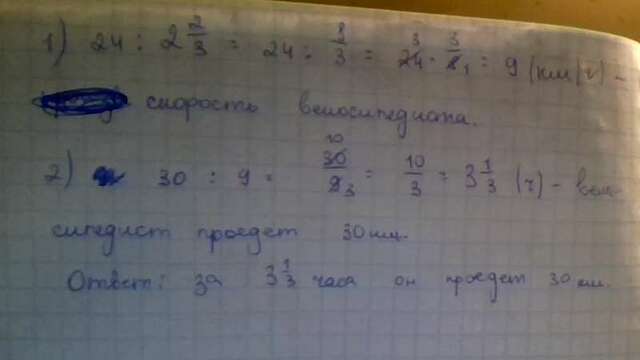 1) 24 : 2 2/3 = 24 : 8/3 = 24 · 3/8 = 9 (км/ч) –
скорость велосипедиста.
2) 30 : 9 = 30/9 = 10/3 = 3 1/3 (ч) – вело-
сипедист проедет 30 км.
Ответ: за 3 1/3 часа он проедет 30 км.